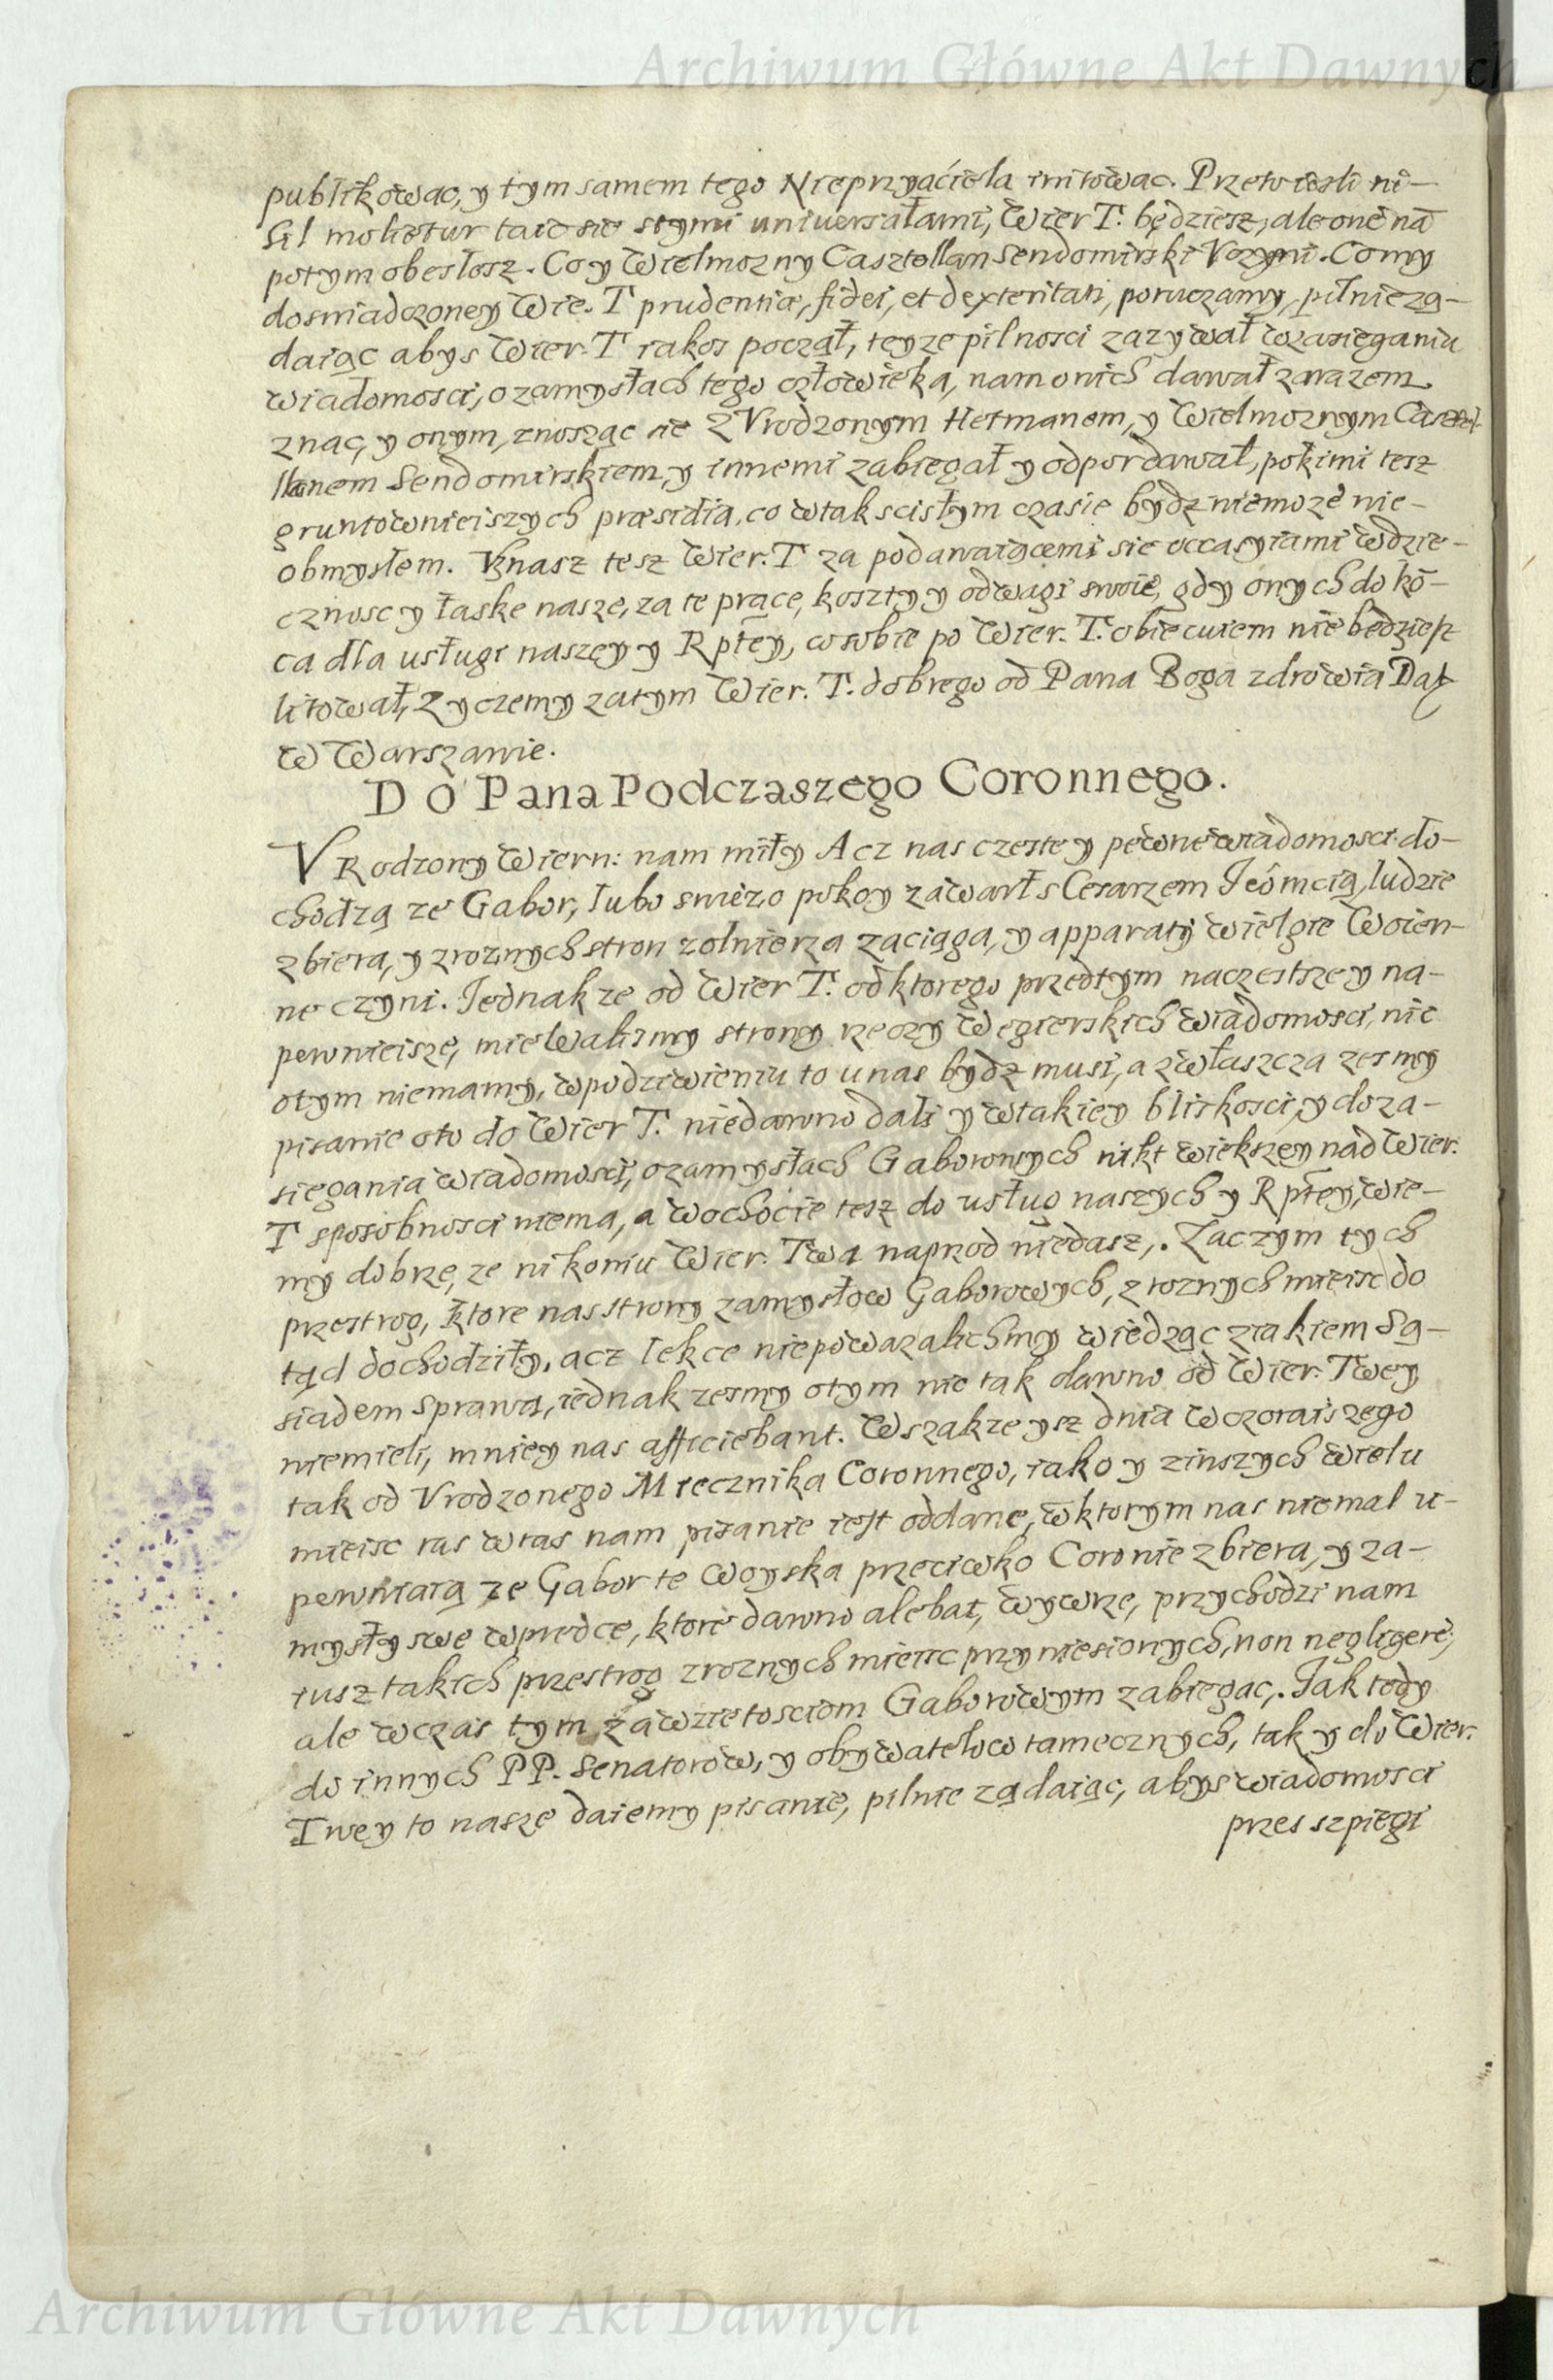 Archiwum Główne Akt Dawnych
publikowac, y tym samem tego Nieprzyaćiela irritowac. Przeto iesli ni-
hil molietur taic sie stymi uniwersałami, Wier T. będziesz, ale one na
potym obesłesz. Co y Wielmozny Casztellan Sendomirski Vczyni. Co my
dosniadczoney Wie. T prudentiæ, fidei, et dexteritati, poruczamy, pilnie zą-
daiąc abys Wier. T iakos począł, teyze pilnosci zazywał wzasięganiu
wiadomosci, o zamysłach tego człowieka, nam onich dawał zarazem
znac, y onym, znosząc sie z Vrodzonym Hetmanem, y Wielmoznym Casztel-
llanem Sendomirskiem, y innemi zabiegał y odpor dawał, pokimi tesz
gruntownieiszych præsidia, co wtak scisłym czasie bydz niemoze nie-
obmyslem. Vznasz tesz Wier. T za podawaiącemi sie occasyiami wdzie-
cznosc y łaske nasze, za te prące, koszty y odwagi swoie, gdy onych do kō-
ca dla usługi naszey y Rptey, co sobie po Wier. T. obiecuiem nie będziesz
litował, Zyczemy zatym Wier. T. dobrego od Pana Boga zdrowia Dat
w Warszawie.
Do Pana Podczaszego Coronnego.
VRodzony Wiern: nam miły Acz nas czeste y pewne wiadomosci do-
chodzą ze Gabor, lubo swiezo pokoy zawarł s Cesarzem Jeo͂mcią, ludzie
zbiera, y zroznych stron zolnierza zaciąga, y apparaty wielgie Woien-
ne czyni. Jednak ze od Wier T. od ktorego przedtym naczestsze y na-
pewnieisze, miewalismy strony rzeczy Węgierskich wiadomosci, nic
otym niemamy, wpodziwieniu to u nas bydz musi, a zwłaszcza zesmy
pisanie oto do Wier T. niedawno dali y wtakiey bliskosci, y do za-
sięgania wiadomosci, o zamysłach Gaborowych nikt większey nad Wier.
T sposobnosci niema, a wochocie tesz do usług naszych y Rptey, wie-
my dobrze, ze nikomu Wier. Twa naprzod niedasz,. Zaczym tych
przestrog, ktore nas strony zamysłow Gaborowych, z roznych mieisc do
tąd dochodziły, acz lekce niepowazalichmy wiedząc ziakiem Są-
siadem sprawa, iednak zesmy otym nic tak dawno od Wier. Twey
niemieli, mniey nas afficiebant. Wszakze ysz dnia wczoraiszego
tak od Vrodzonego Miecznika Coronnego, iako y zinszych wielu
mieisc ras wras nam pisanie iest oddane, w ktorym nas niemal u-
pewniaią ze Gabor te woyska przeciwko Coronie zbiera, y za-
mysły swe wpredce, ktore dawno alebat, wywrze, przychodzi nam
iusz takich przestrog zroznych mieisc przyniesionych, non negligere,
ale wczas tym zawzietosciom Gaborowym zabiegac,. Jak tedy
do innych PP. Senatorow, y obywatelow tamecznych, tak y do Wier.
Twey to nasze daiemy pisanie, pilnie ządaiąc, abys wiadomosci
przes szpiegi
Archiwum Główne Akt Dawnych